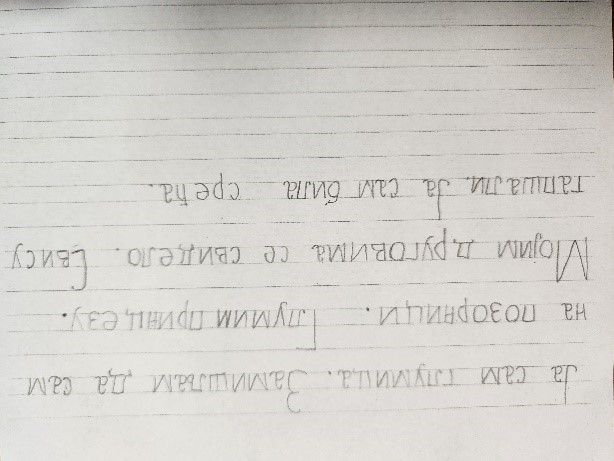 Ја сам глумица. Замишљам да сам
на позорници. Глумим принцезу.
Мојим друговима се свидело. Свису
тапшали. Ја сам била срећа.